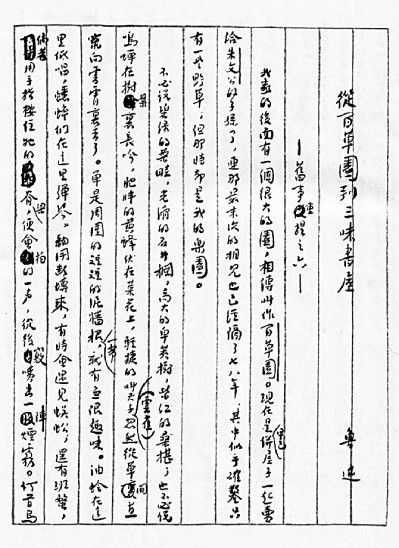 從百草園到三味書屋
魯迅
——舊事重提之六——
我家的後面有一個很大的園,相傳叫作百草園。現在是早已併屋子一起賣
給朱文公的子孫了,連那最末次的相見也已經隔了七八年,其中似乎確鑿只
有一些野草,但那時卻是我的樂園。
不必說碧綠的菜畦,光滑的石井欄,高大的皁莢樹,紫紅的桑椹;也不必說
鳴蟬在樹葉裏長吟,肥胖的黃蜂伏在菜花上,輕捷的叫天子(雲雀)忽然從草間直
竄向雲霄裏去了。單是周圍的短短的泥牆根一帶,就有無限趣味。油蛉在這
里低唱,蟋蟀們在這里彈琴。翻開斷磚來,有時會遇見蜈蚣;還有斑蝥,
倘若用手指按住牠的脊梁,便會拍的一聲,從後竅噴出一陣煙霧。何首烏